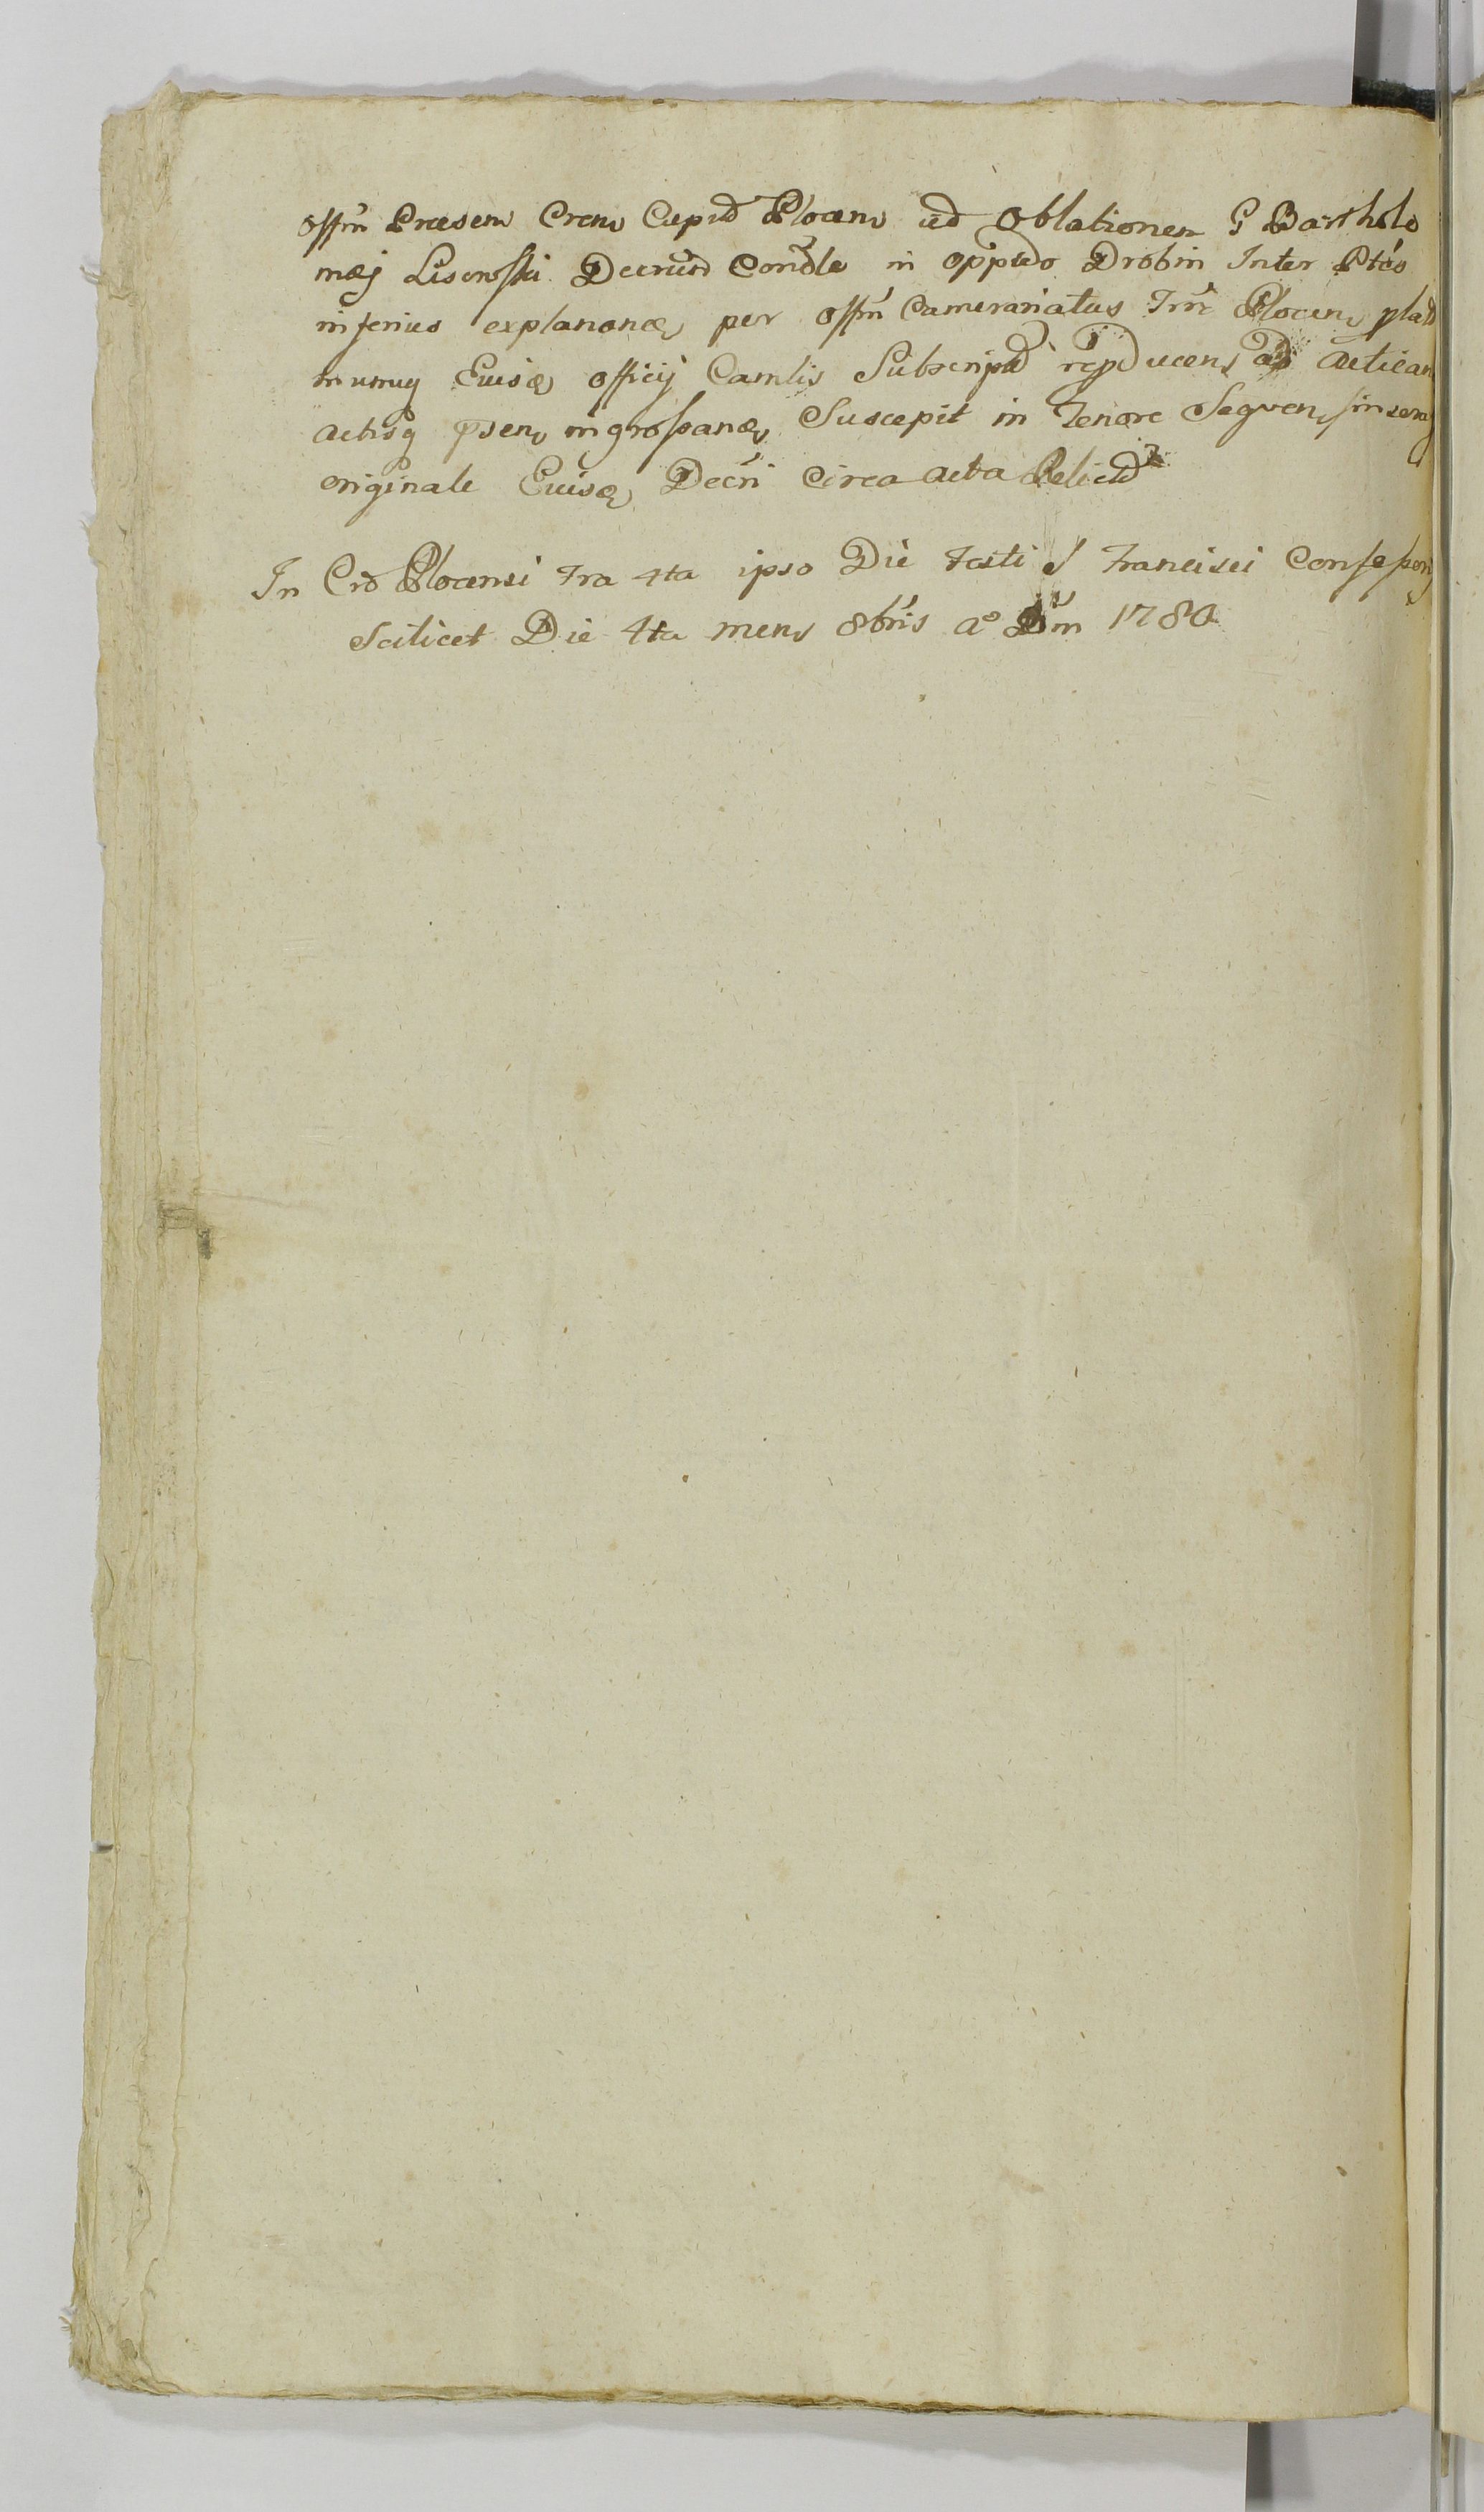 Offm Præsens Crens Capid Plocens ad Oblationem G Bartholo
mæj Lisowski Decrum Condle in oppido Drobin Inter Ptes
inferius explanan per offm Camerariatus Trræ Plocens
manuq Eiusd officij Camlis Subscript reproducens ad Actican
actisq præsen ingrossan Suscepit in Tenore Seqven
originale Eiusd Decri Circa acta Relict
In Cro Plocensi Fra 4ta ipso Die Festi S Francisci Confessoris
Scilicet Die 4ta mens 8bris Ao Dm 1780